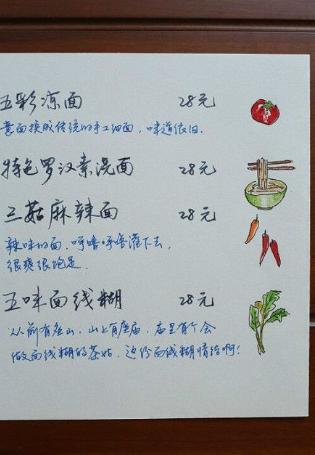 五彩凉面 28元
意面换成传统的手工细面，味道依旧.
特色罗汉素浇面 28元
三菇麻辣面 28元
辣味的面，呼噜呼噜灌下去，
很爽很饱足.
五味面线糊 28元
从前有座山，山上有座庙，庙里有个会
做面线糊的茶姑，这份面线糊情结啊！